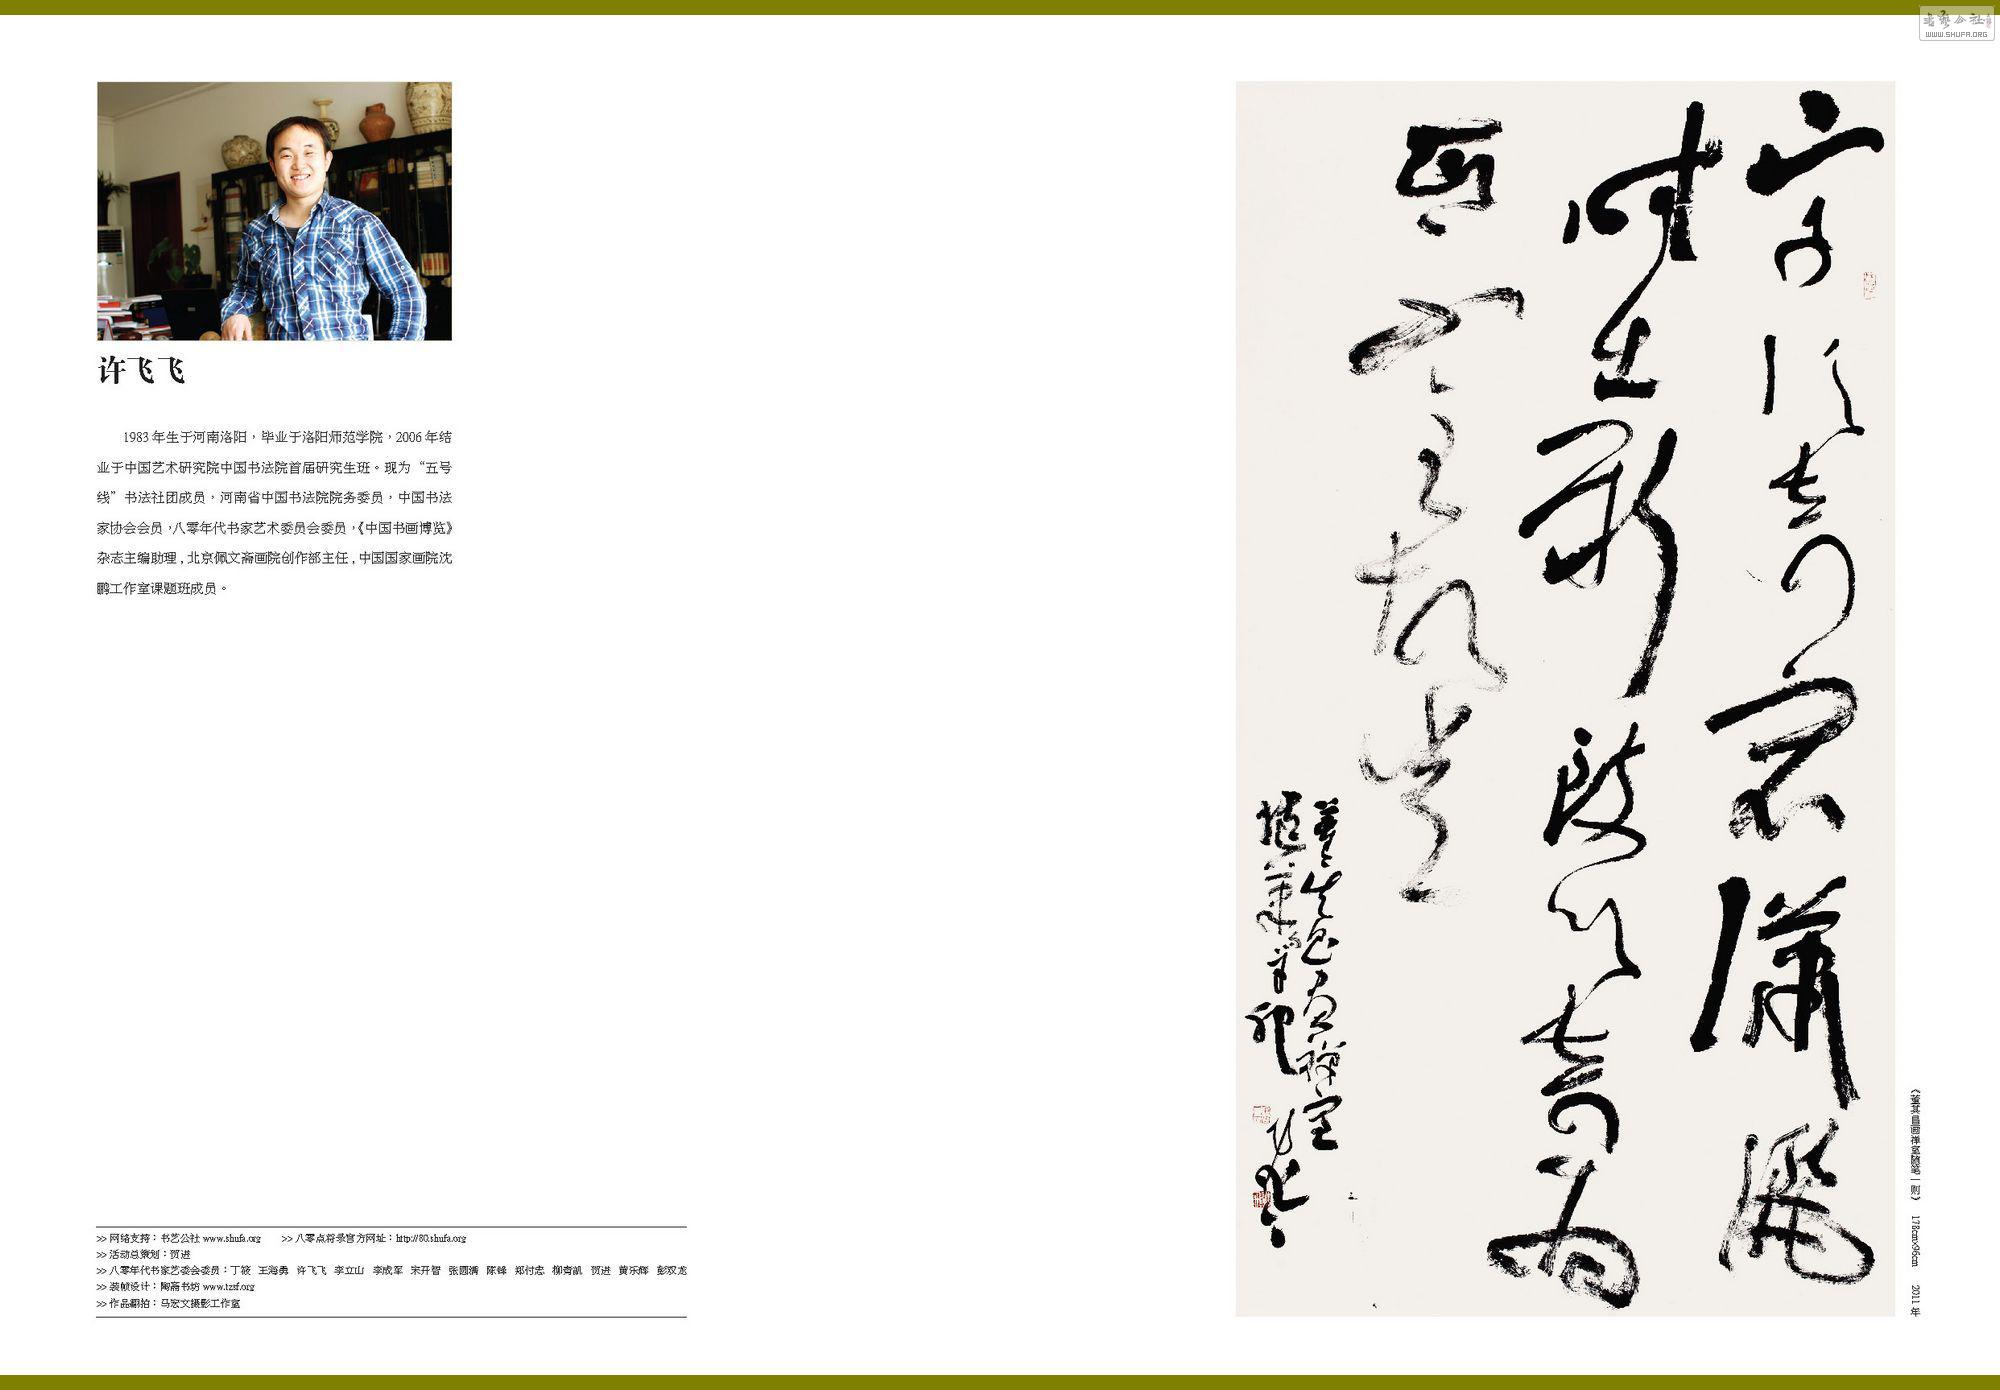 书艺公社
WWW.SHUFA.ORG
许飞飞
1983 年生于河南洛阳，毕业于洛阳师范学院，2006 年结
业于中国艺术研究院中国书法院首届研究生班。现为“五号
线”书法社团成员，河南省中国书法院院务委员，中国书法
家协会会员，八零年代书家艺术委员会委员，《中国书画博览》
杂志主编助理，北京佩文斋画院创作部主任，中国国家画院沈
鹏工作室课题班成员。
>> 网络支持：书艺公社 www.shufa.org >> 八零点将录官方网址：http://80.shufa.org
>> 活动总策划：贺进
>> 八零年代书家艺委会委员：丁筱 王海勇 许飞飞 李立山 李成军 宋开智 张圆满 陈锋 郑付忠 柳青凯 贺进 黄乐辉 彭双龙
>> 装帧设计：陶斋书坊 www.tzsf.org
>> 作品翻拍：马宏文摄影工作室
字須奇宕瀟灑
時出新致以奇為
正不主故常
画禅室
《董其昌画禅室随笔一则》 178cm×96cm 2011 年